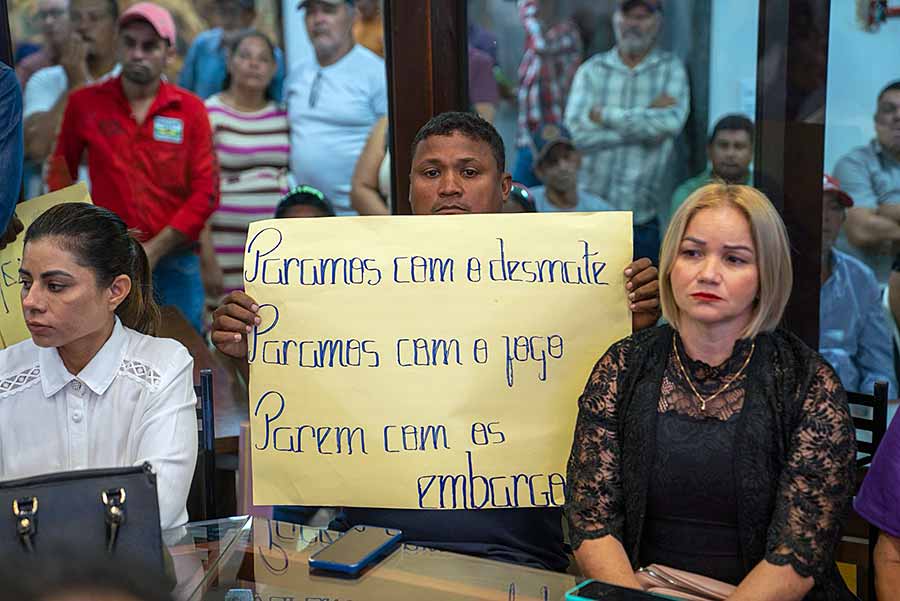 Paramos com o desmate
Paramos com o fogo
Parem com os
embargo